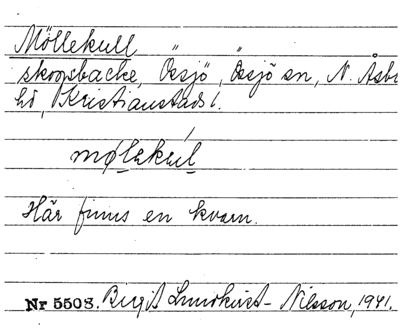 Möllekull
skogsbacke, Össjö, Össjö sn, N. Åsbo
hd, Kristianstads l.
Här finns en kvarn.
Nr 5508. Birgit Lundkvist-Nilsson, 1941.